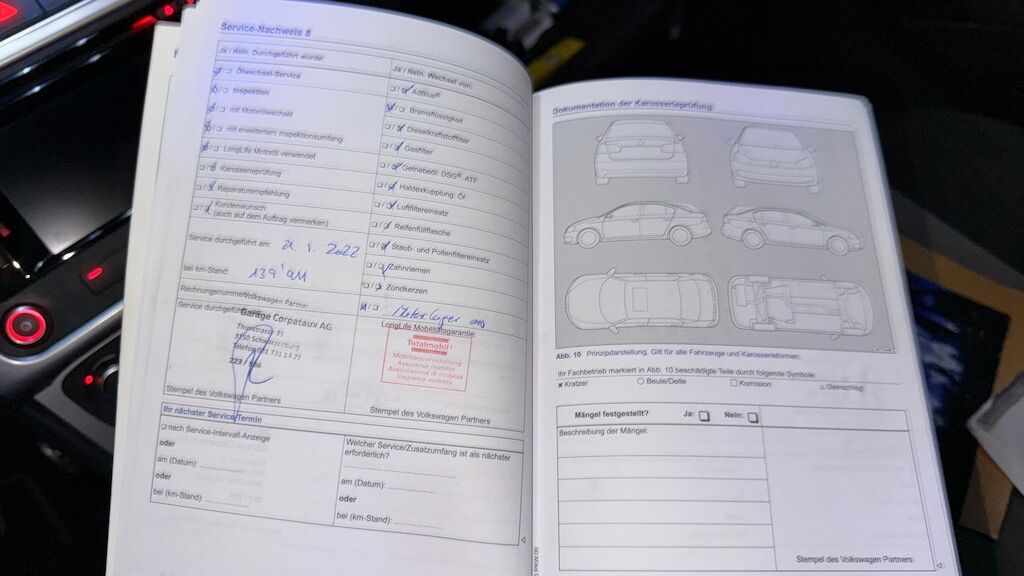 Service-Nachweis 8
Ja / Nein. Durchgeführt wurde:
Ölwechsel-Service
Inspektion
mit Motorölwechsel
mit erweitertem Inspektionsumfang
LongLife Motoröl verwendet
Karosserieprüfung
Reparaturempfehlung
Kundenwunsch
(auch auf dem Auftrag vermerken)
Service durchgeführt am: 21.1.2022
bei km-Stand:
Rechnungsnummer Volkswagen Partner
Service durchgeführt
Garage Corpataux AG
Thunstrasse 35
3150 Schwarzenburg
Telefon 031 731 13 25
Stempel des Volkswagen Partners
Ja / Nein. Wechsel von:
AdBlue®
Bremsflüssigkeit
Dieselkraftstofffilter
Gasfilter
Getriebeöl: DSG®, ATF
Haldexkupplung: Öl
Luftfiltereinsatz
Reifenfüllflasche
Staub- und Pollenfiltereinsatz
Zahnriemen
Zündkerzen
Motorlager
LongLife Mobilitätsgarantie:
Totalmobil!
Mobilitätsversicherung
Assurance mobilité
Assicurazione di mobilità
Insurance mobility
Stempel des Volkswagen Partners
Ihr nächster Service/Termin
nach Service-Intervall-Anzeige
oder
am (Datum):
oder
bei (km-Stand):
Welcher Service/Zusatzumfang ist als nächster
erforderlich?
am (Datum):
oder
bei (km-Stand):
Dokumentation der Karosserieprüfung
Abb. 10 Prinzipdarstellung. Gilt für alle Fahrzeuge und Karosserieformen.
Ihr Fachbetrieb markiert in Abb. 10 beschädigte Teile durch folgende Symbole:
x Kratzer ○ Beule/Delle □ Korrosion △ Steinschlag
Mängel festgestellt? Ja: Nein:
Beschreibung der Mängel:
Stempel des Volkswagen Partners: